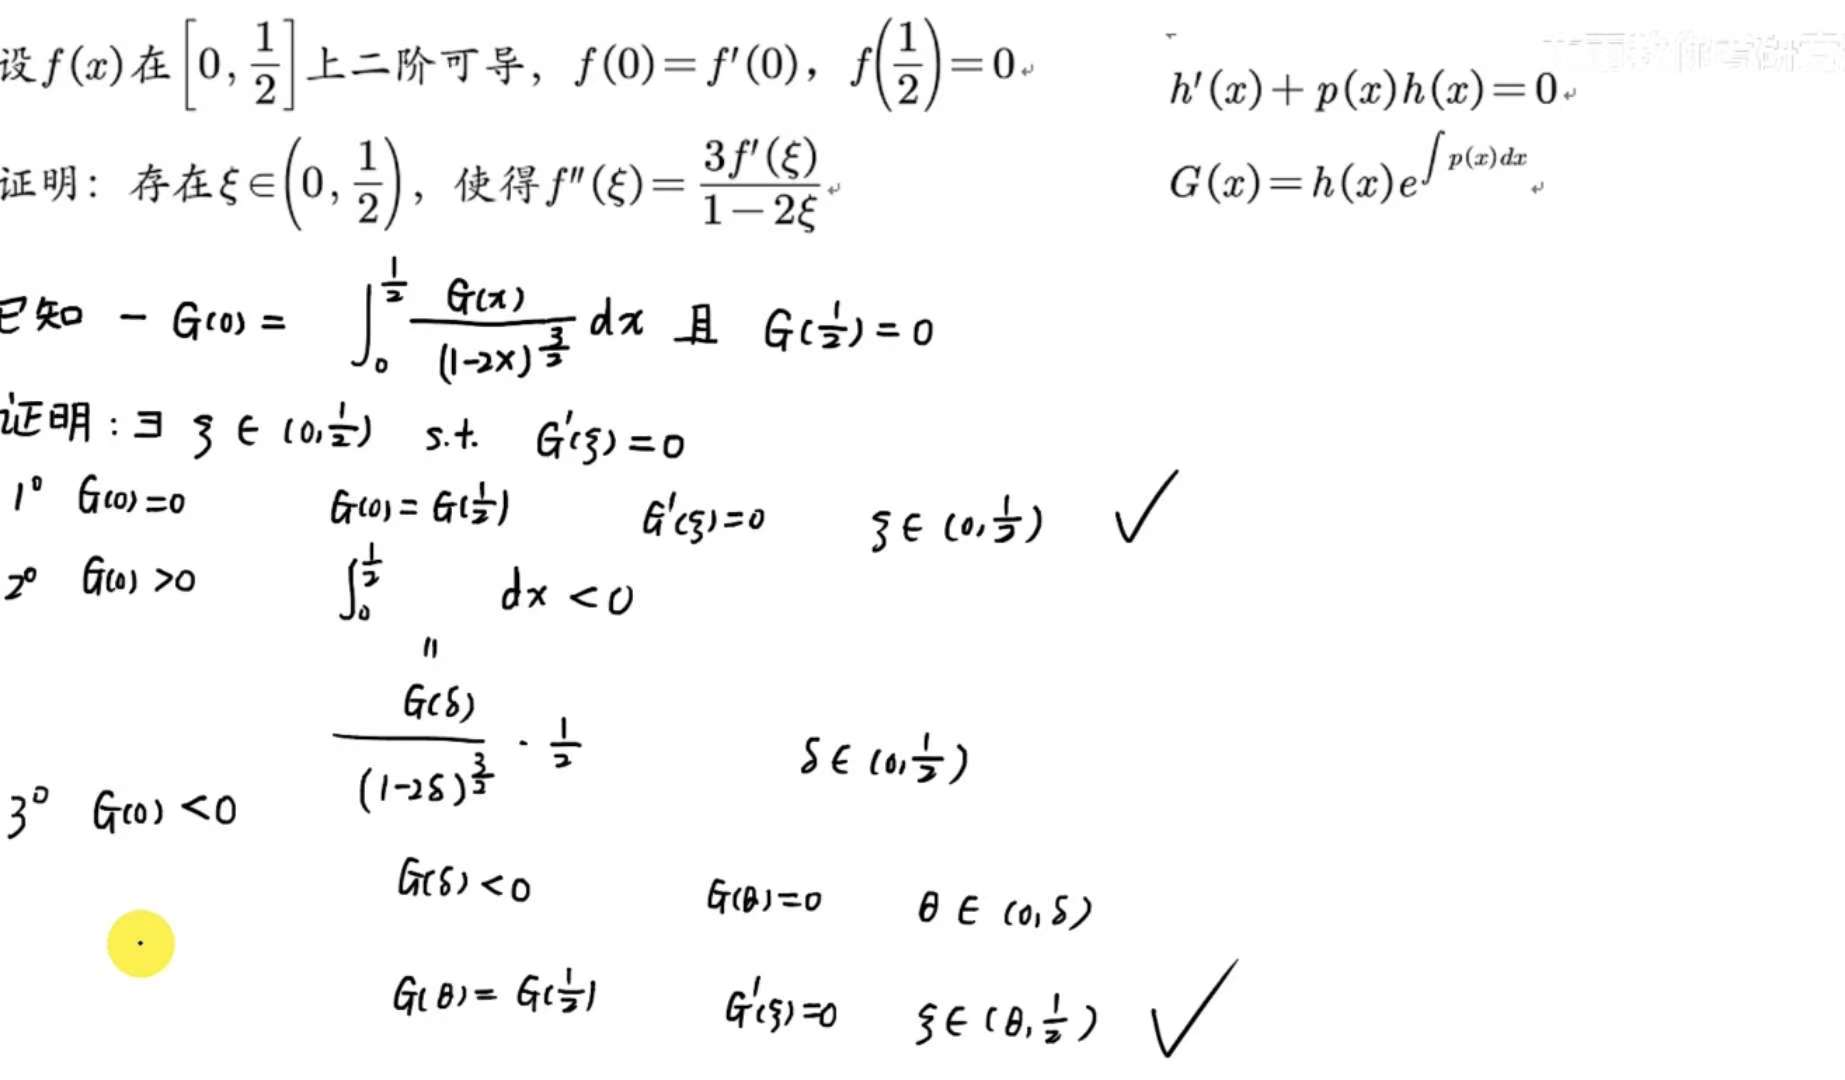 设 f(x) 在 [0, 1/2] 上二阶可导，f(0)=f′(0)，f(1/2)=0
证明：存在 ξ∈(0, 1/2)，使得 f″(ξ)= 3f′(ξ)/(1−2ξ)
h′(x)+p(x)h(x)=0
G(x)=h(x)e^{∫p(x)dx}
已知 −G(0)= ∫_0^{1/2} G(x)/(1-2x)^{3/2} dx 且 G(1/2)=0
证明：∃ ξ∈(0,1/2) s.t. G′(ξ)=0
1° G(0)=0 G(0)=G(1/2) G′(ξ)=0 ξ∈(0,1/2) ✓
2° G(0)>0 ∫_0^{1/2} dx <0
=
G(δ)/(1-2δ)^{3/2} · 1/2 δ∈(0,1/2)
3° G(0)<0
G(δ)<0 G(θ)=0 θ∈(0,δ)
G(θ)=G(1/2) G′(ξ)=0 ξ∈(θ,1/2) ✓